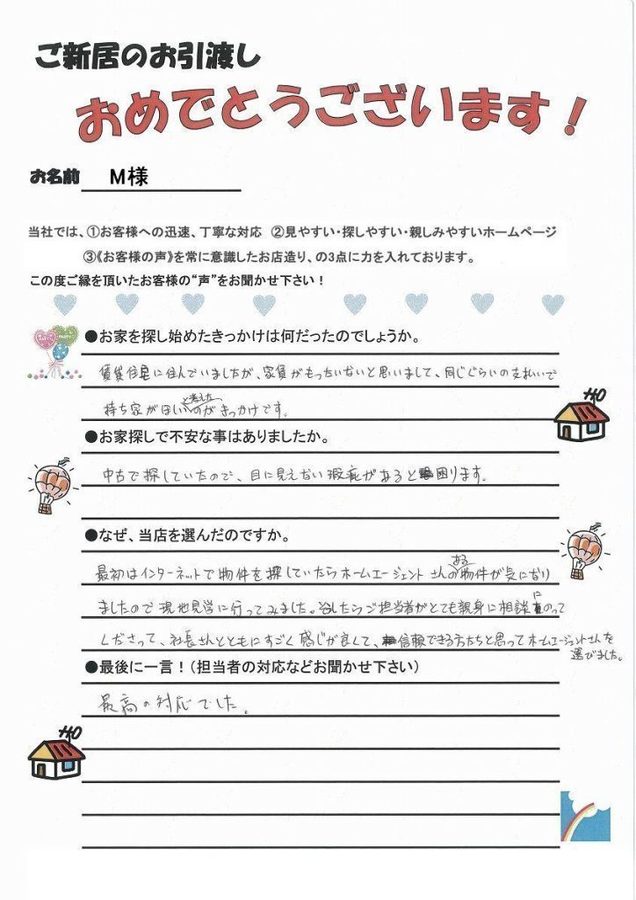 ご新居のお引渡し
おめでとうございます!
お名前 M様
当社では、①お客様への迅速、丁寧な対応 ②見やすい・探しやすい・親しみやすいホームページ
③《お客様の声》を常に意識したお店造り、の3点に力を入れております。
この度ご縁を頂いたお客様の“声”をお聞かせ下さい!
●お家を探し始めたきっかけは何だったのでしょうか。
賃貸住宅に住んでいましたが、家賃がもったいないと思いまして、同じぐらいの支払いで
持ち家がほしいと考えたのがきっかけです。
●お家探しで不安な事はありましたか。
中古で探していたので、目に見えない瑕疵があると困ります。
●なぜ、当店を選んだのですか。
最初はインターネットで物件を探していたらホームエージェントさんのある物件が気になり
ましたので現地見学に行ってみました。そしたらご担当者がとても親身に相談にのって
くださって、社長さんとともにすごく感じが良くて、信頼できる方たちと思ってホームエージェントさんを
選びました。
●最後に一言!(担当者の対応などお聞かせ下さい)
最高の対応でした。